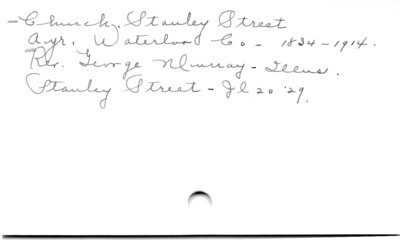 - Church. Stanley Street
Ayr. Waterloo Co - 1834-1914.
Rev. George Murray - Illus.
Stanley Street - Jl 20 '29.